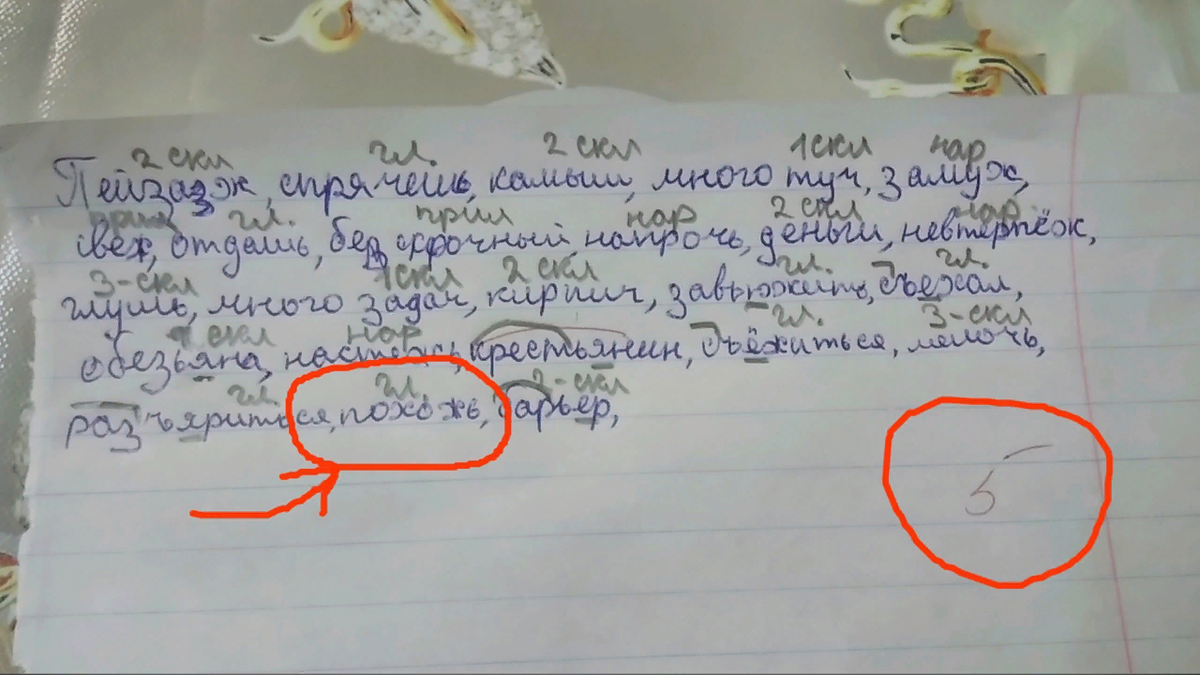 2 скл гл. 2 скл 1 скл нар
Пейзазж, спрячешь, камыш, много туч, замуж,
прил гл. прил нар 2 скл нар.
свеж, отдашь, бер срочный, напрочь, деньги, невтерпёж,
3-скл 1 скл 2 скл гл. гл.
глушь, много задач, кирпич, завьюжить, съехал,
1 скл нар гл. 3-скл
обезьяна, настежь, крестьянин, съёжиться, мелочь,
гл. гл. 2-скл
разъяриться, похожь, барьер,
5